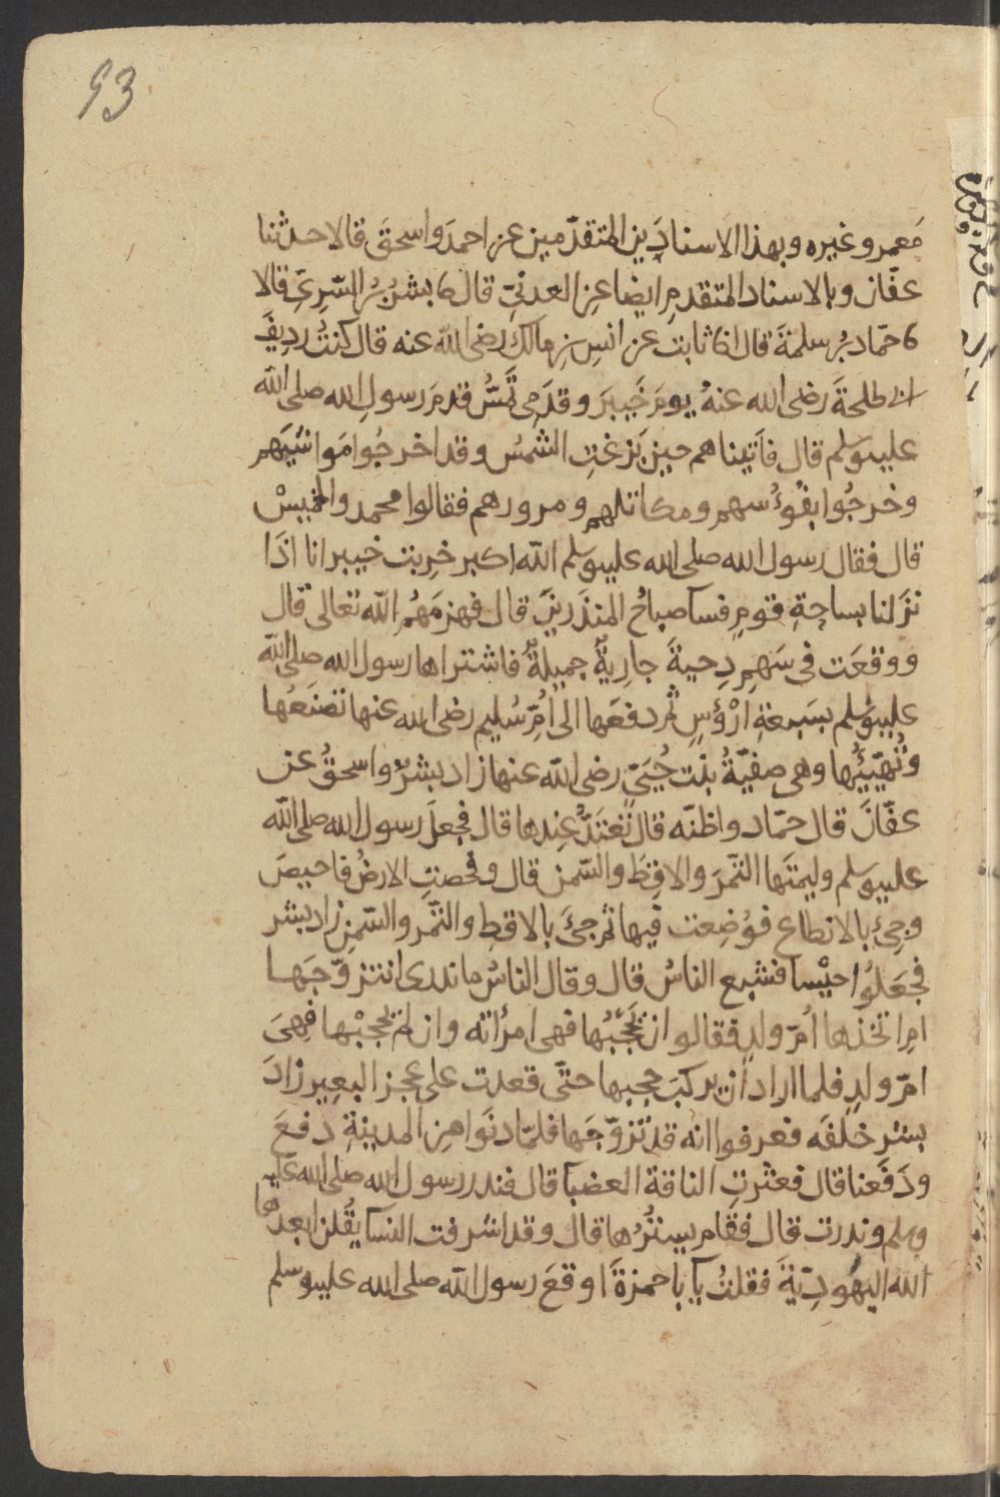 93
مَعمر وغيره وبهذا الاسنادَين المتقدّمين عن احمدَ واسحقَ قالا حدثنا
عفّان وبالاسناد المتقدمِ ايضا عن العدنيّ قال ثا بشرُ بنُ السّرِيّ قالا
ثا حمّاد بنُ سلمةَ قال انا ثابت عن انسِ بنِ مالك رضى الله عنه قال كنتُ رديفَ
ابى طلحةَ رضى الله عنهُ يومَ خَيبرَ وقدَمِى تَمسُّ قدمَ رسولِ الله صلى الله
عليه وسلم قال فاَتيناهم حين بَزغتِ الشمسُ وقد اخرجُوا مَواشيَهم
وخرجُوا بفُوءُسهم ومكاتلهم ومرورهم فقالوا محمد والخميسْ
قال فقال رسول الله صلى الله عليه وسلم الله اكبر خرِبت خيبر انا اذَا
نزَلنا بساحةِ قومٍ فسآ صباحُ المنذَرينَ قال فهزمَهمُ الله تعالى قال
ووقعَت فى سَهمِ دِحيةَ جارِيةٌ جميلةٌ فاشتراها رسول الله صلى الله
عليه وسلم بسَبعةِ ارْؤسٍ ثم دفعَها الى اُمّ سُليم رضى الله عنها تصنَعُها
وتُهيّئُها وهى صفيّةُ بنْت حُيَيّ رضى الله عنها زاد بشرٌ واسحقُ عن
عفّانَ قال حمّاد واظنّه قال تَعتَدُّ عِندها قال فجعلَ رسول الله صلى الله
عليه وسلم وليمتَها التّمرَ والاقِطَ والسّمن قال وفُحصتِ الارضُ فاحيصَ
وجِئَ بالانطاع فوُضِعت فيها ثم جئَ بالاقطِ والتّمر والسّمنِ زاد بشر
فجعَلوُا حيْسا فشبع الناسُ قال وقال الناسُ ما ندرى اتتزوّجَهــا
امِ اتخذها اُمّ ولدٍ فقالوا ان يَحجُبُها فهى امرأته وان لم يحجبْها فهِىَ
امّ ولدٍ فلما اراد اَن يركبَ حجبها حتّى قعدت على عجز البعِير زادَ
بشر خلفَه فعرفوا انه قد تزوّجَها فلمّا دنَوا من المدينةِ دفعَ
ودَفَعنا قال فعثرتِ الناقة العضبا قال فندر رسول الله صلى الله عليه
وسلم وندرت قال فقام يسترُها قال وقد اشرفت النسآ يقُلن ابعدها
الله اليهُودِيّةَ فقلتُ يآ با حمزةَ اوقعَ رسول الله صلى الله عليه وسلم